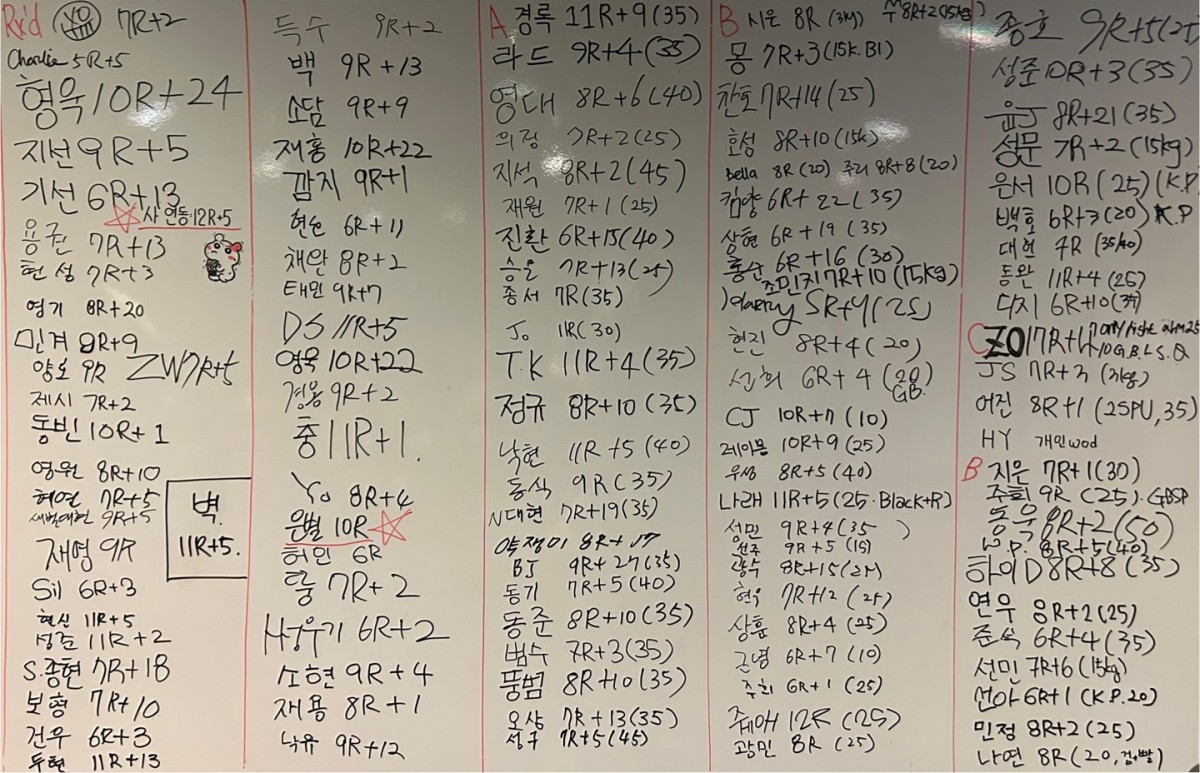 Rx'd YO 7R+2
Charlie 5R+5
형욱 10R+24
지선 9R+5
기선 6R+13
사 연동 12R+5
용권 7R+13
현성 7R+3
영기 8R+20
민겨 8R+9
양호 9R ZW 7R+5
제시 7R+2
동빈 10R+1
영원 8R+10
혜연 7R+5
새벽대현 9R+5
벽.
11R+5.
재영 9R
Sil 6R+3
현신 11R+5
성준 11R+2
S.종현 7R+18
보형 7R+10
건우 6R+3
두현 11R+13
득수 9R+2
백 9R+13
소담 9R+9
재홍 10R+22
깜지 9R+1
현순 6R+11
채완 8R+2
태민 9R+7
DS 11R+5
영욱 10R+22
경용 9R+2
중 11R+1.
Yo 8R+4
은별 10R
허인 6R
룰 7R+2
6R+2
소현 9R+4
재용 8R+1
낙유 9R+12
A 경록 11R+9 (35)
라드 9R+4 (35)
영대 8R+6 (40)
의정 7R+2 (25)
지석 8R+2 (45)
재원 7R+1 (25)
진환 6R+15 (40)
승은 7R+13 (25)
종서 7R (35)
Jo 11R (30)
T.K 11R+4 (35)
정규 8R+10 (35)
낙현 11R+5 (40)
동식 9R (35)
N대현 7R+19 (35)
약쟁이 8R+17
BJ 9R+27 (35)
동기 7R+5 (40)
동준 8R+10 (35)
범수 7R+3 (35)
풍범 8R+10 (35)
오상 7R+13 (35)
성구 7R+5 (45)
B 시은 8R (3kg) 수 8R+2 (15kg)
몽 7R+3 (15k.Bl)
찬호 7R+14 (25)
효성 8R+10 (15k)
Bella 8R (20) 주리 8R+8 (20)
킴양 6R+22 (35)
상현 6R+19 (35)
홍순 6R+16 (30)
조민지 7R+10 (15kg)
5R+4 (25)
현진 8R+4 (20)
선희 6R+4 (20)
GB.
CJ 10R+7 (10)
레이몽 10R+9 (25)
우성 8R+5 (40)
나래 11R+5 (25.Black+R)
성민 9R+4 (35 )
선주 9R+5 (15)
8R+15 (25)
현우 7R+12 (25)
상훈 8R+4 (25)
근녕 6R+7 (10)
주희 6R+1 (25)
12R (25)
광민 8R (25)
종호 9R+5 (25)
성준 10R+3 (35)
윤J 8R+21 (35)
성문 7R+2 (15kg)
은서 10R (25) (K.P
백호 6R+3 (20) K.P
대현 7R (35/40)
동완 11R+4 (25)
다지 6R+10 (35)
C ZO 17R+17 only right arm 25
10 G.B.L.S.Q
JS 7R+3
어진 8R+1 (25PU, 35)
HY 개인wod
B 지은 7R+1 (30)
주희 9R (25).GBSP
동욱 8R+2 (50)
W.P. 8R+5 (40)
하이D 8R+8 (35)
연우 8R+2 (25)
준석 6R+4 (35)
선민 7R+6 (15kg)
선아 6R+1 (K.P.20)
민정 8R+2 (25)
나연 8R (20, 검+빨)